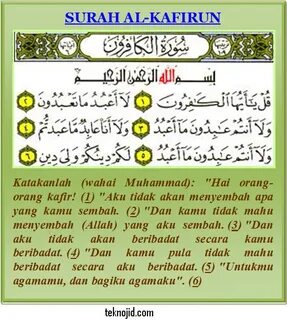 SURAH AL-KAFIRUN
سُورَةُ الْكَافِرُونَ
بِسْمِ اللَّهِ الرَّحْمَٰنِ الرَّحِيمِ
قُلْ يَا أَيُّهَا الْكَافِرُونَ ١ لَا أَعْبُدُ مَا تَعْبُدُونَ ٢
وَلَا أَنْتُمْ عَابِدُونَ مَا أَعْبُدُ ٣ وَلَا أَنَا عَابِدٌ مَا عَبَدْتُمْ ٤
وَلَا أَنْتُمْ عَابِدُونَ مَا أَعْبُدُ ٥ لَكُمْ دِينُكُمْ وَلِيَ دِينِ ٦
Katakanlah (wahai Muhammad): "Hai orang-
orang kafir! (1) "Aku tidak akan menyembah apa
yang kamu sembah. (2) "Dan kamu tidak mahu
menyembah (Allah) yang aku sembah. (3) "Dan
aku tidak akan beribadat secara kamu
beribadat. (4) "Dan kamu pula tidak mahu
beribadat secara aku beribadat. (5) "Untukmu
agamamu, dan bagiku agamaku". (6)
teknojid.com